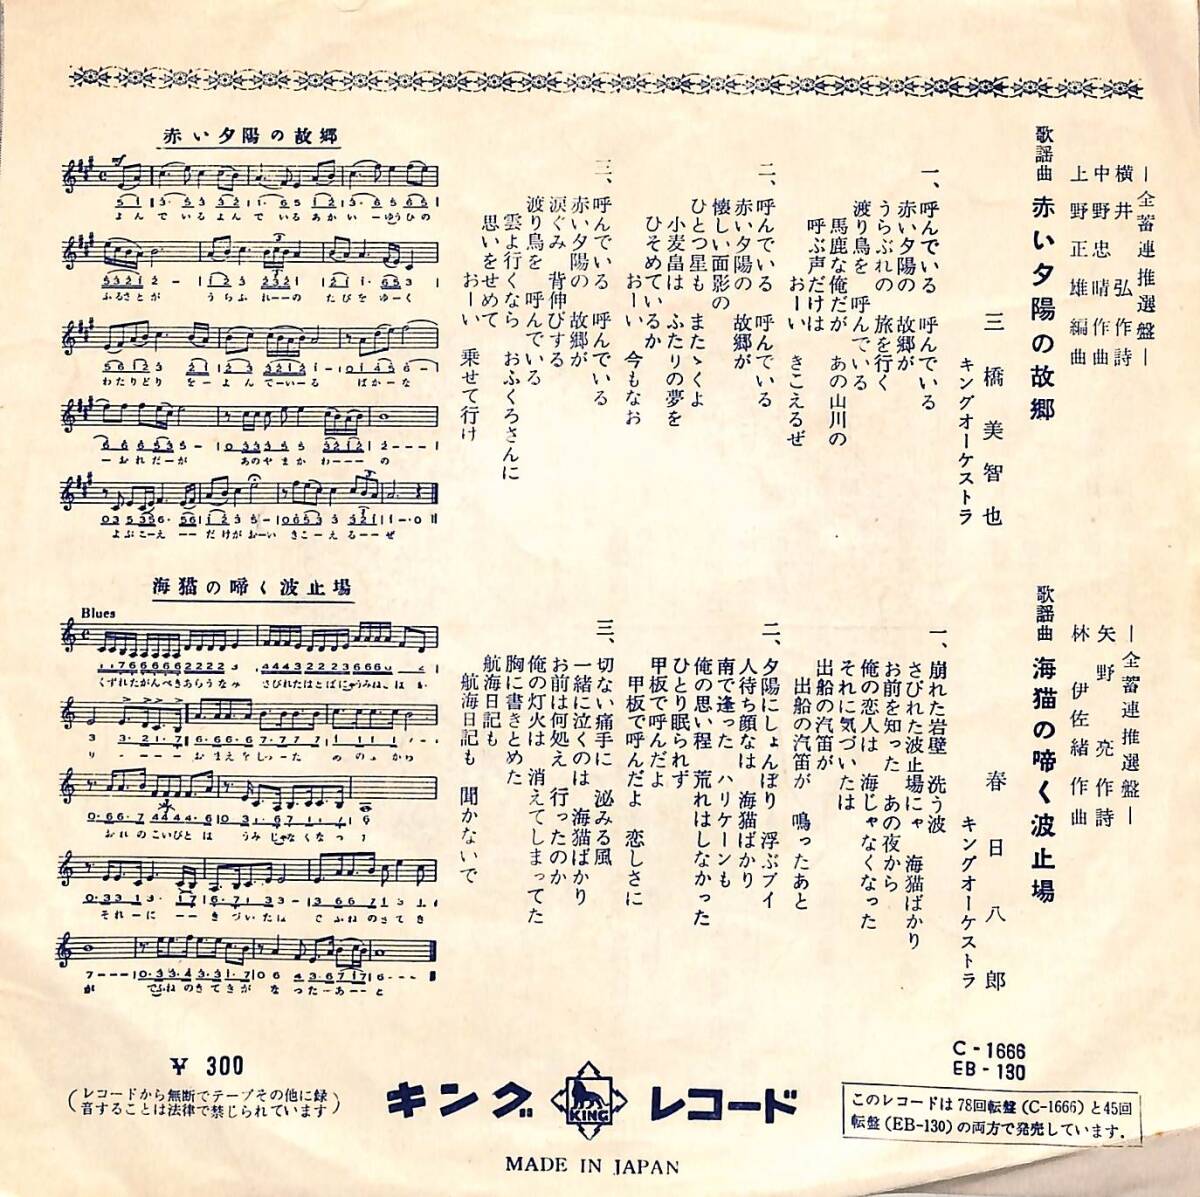 ―全蓄連推選盤―
横井弘作詩
中野忠晴作曲
上野正雄編曲
歌謡曲 赤い夕陽の故郷
三橋美智也
キングオーケストラ
一、呼んでいる 呼んでいる
赤い夕陽の 故郷が
うらぶれの 旅を行く
渡り鳥を 呼んでいる
馬鹿な俺だが あの山川の
呼ぶ声だけは
おーい きこえるぜ
二、呼んでいる 呼んでいる
赤い夕陽の 故郷が
懐しい面影の
ひとつ星も またゝくよ
小麦畠は ふたりの夢を
ひそめているか
おーい 今もなお
三、呼んでいる 呼んでいる
赤い夕陽の 故郷が
涙ぐみ 背伸びする
渡り鳥を 呼んでいる
雲よ行くなら おふくろさんに
思いをせめて
おーい 乗せて行け
赤い夕陽の故郷
mf
よんでいるよんでいるあかいーゆうひの
ふるさとが うらぶれーーの たびをゆーく
わたりどり をーよんでーいーる ばかーな
ーおれだーが あのやまかわーーーの
よぶこーえーーだけがおーい きこーえるーーぜ
―全蓄連推選盤―
矢野亮作詩
林伊佐緒作曲
歌謡曲 海猫の啼く波止場
春日八郎
キングオーケストラ
一、崩れた岩壁 洗う波
さびれた波止場にゃ 海猫ばかり
お前を知った あの夜から
俺の恋人は 海じゃなくなった
それに気づいたは
出船の汽笛が
出船の汽笛が 鳴ったあと
二、夕陽にしょんぼり 浮ぶブイ
人待ち顔なは 海猫ばかり
南で逢った ハリケーンも
俺の思い程 荒れはしなかった
ひとり眠られず
甲板で呼んだよ
甲板で呼んだよ 恋しさに
三、切ない痛手に 泌みる風
一緒に泣くのは 海猫ばかり
お前は何処え 行ったのか
俺の灯火は 消えてしまってた
胸に書きとめた
航海日記も
航海日記も 聞かないで
海猫の啼く波止場
Blues
くずれたがんぺきあらうなみ さびれたはとばにゃうみね、ばか
りーーーー おまえをしーった あのよから
おれのこいびとは うみじゃなくなった
それーにーーきづいたは でふねのきてき
が でふねのきてきが なったーあーと
￥300
(レコードから無断でテープその他に録
音することは法律で禁じられています)
キング KING レコード
MADE IN JAPAN
C-1666
EB-130
このレコードは78回転盤(C-1666)と45回
転盤(EB-130)の両方で発売しています。